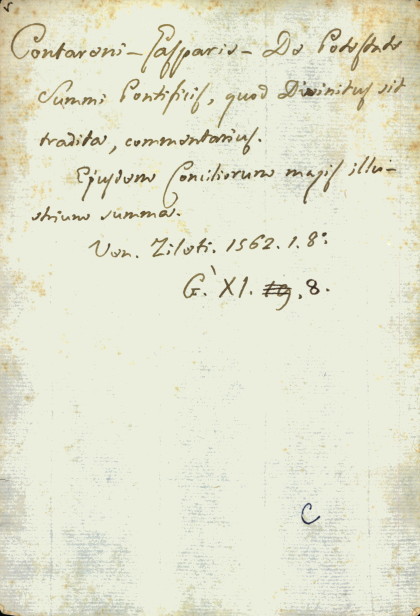 Contareni - Gasparis - De Potestate
Summi Pontificis, quod Divinitus sit
tradita, commentarius.
Ejusdem Conciliorum magis illu-
strium summa.
Ven. Zileti. 1562. 1. 8:
G. XI. 8.
C